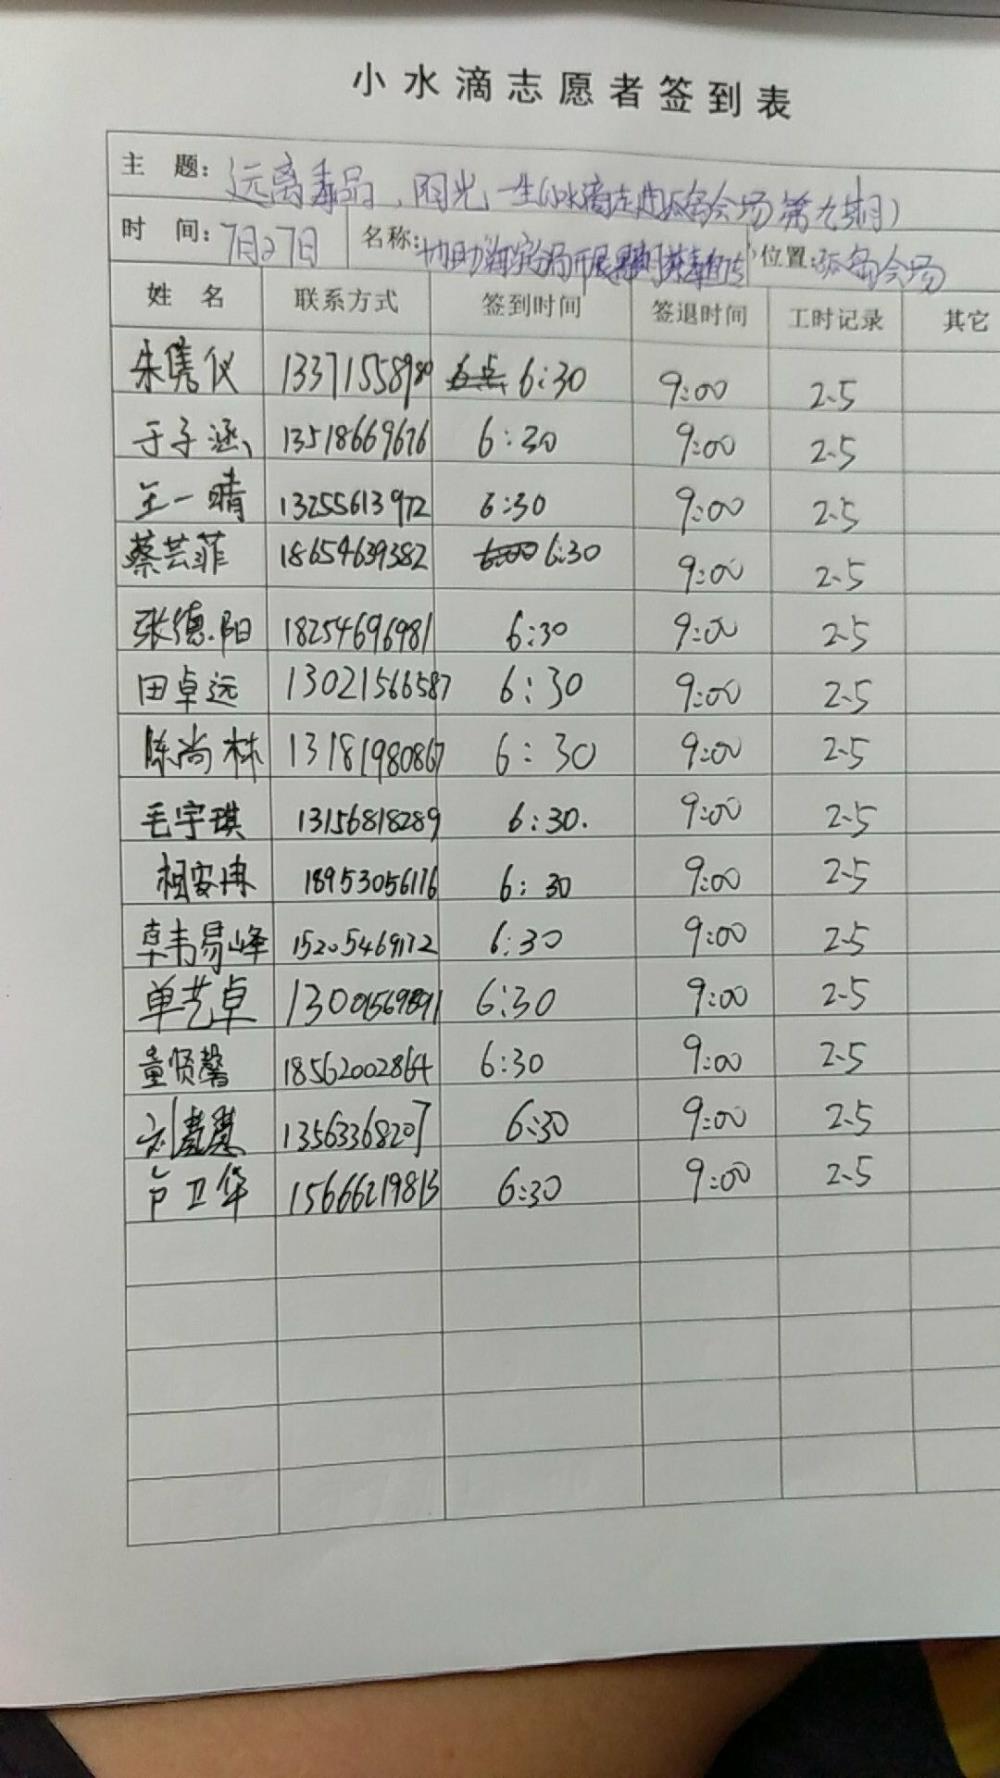 小水滴志愿者签到表
主 题：远离毒品、阳光一生(小水滴走进孤岛会场第九期)
时 间：7月27日 名称：协助海滨分局开展 禁毒宣传 位置：孤岛会场
姓 名 联系方式 签到时间 签退时间 工时记录 其它
朱隽仪 13371558980 6点 6:30 9:00 2.5
于子涵 13518669676 6:30 9:00 2.5
王一晴 13255613972 6:30 9:00 2.5
蔡芸菲 18654639382 6:00 6:30 9:00 2.5
张德阳 18254696981 6:30 9:00 2.5
田卓远 13021566587 6:30 9:00 2.5
陈尚林 13181980867 6:30 9:00 2.5
毛宇琪 13156818289 6:30. 9:00 2.5
相安冉 18953056176 6:30 9:00 2.5
韦易峰 15205469172 6:30 9:00 2.5
单艺卓 13001569891 6:30 9:00 2.5
童贤馨 18562002864 6:30 9:00 2.5
刘慧慧 13563368207 6:30 9:00 2.5
卢卫华 15666219813 6:30 9:00 2.5